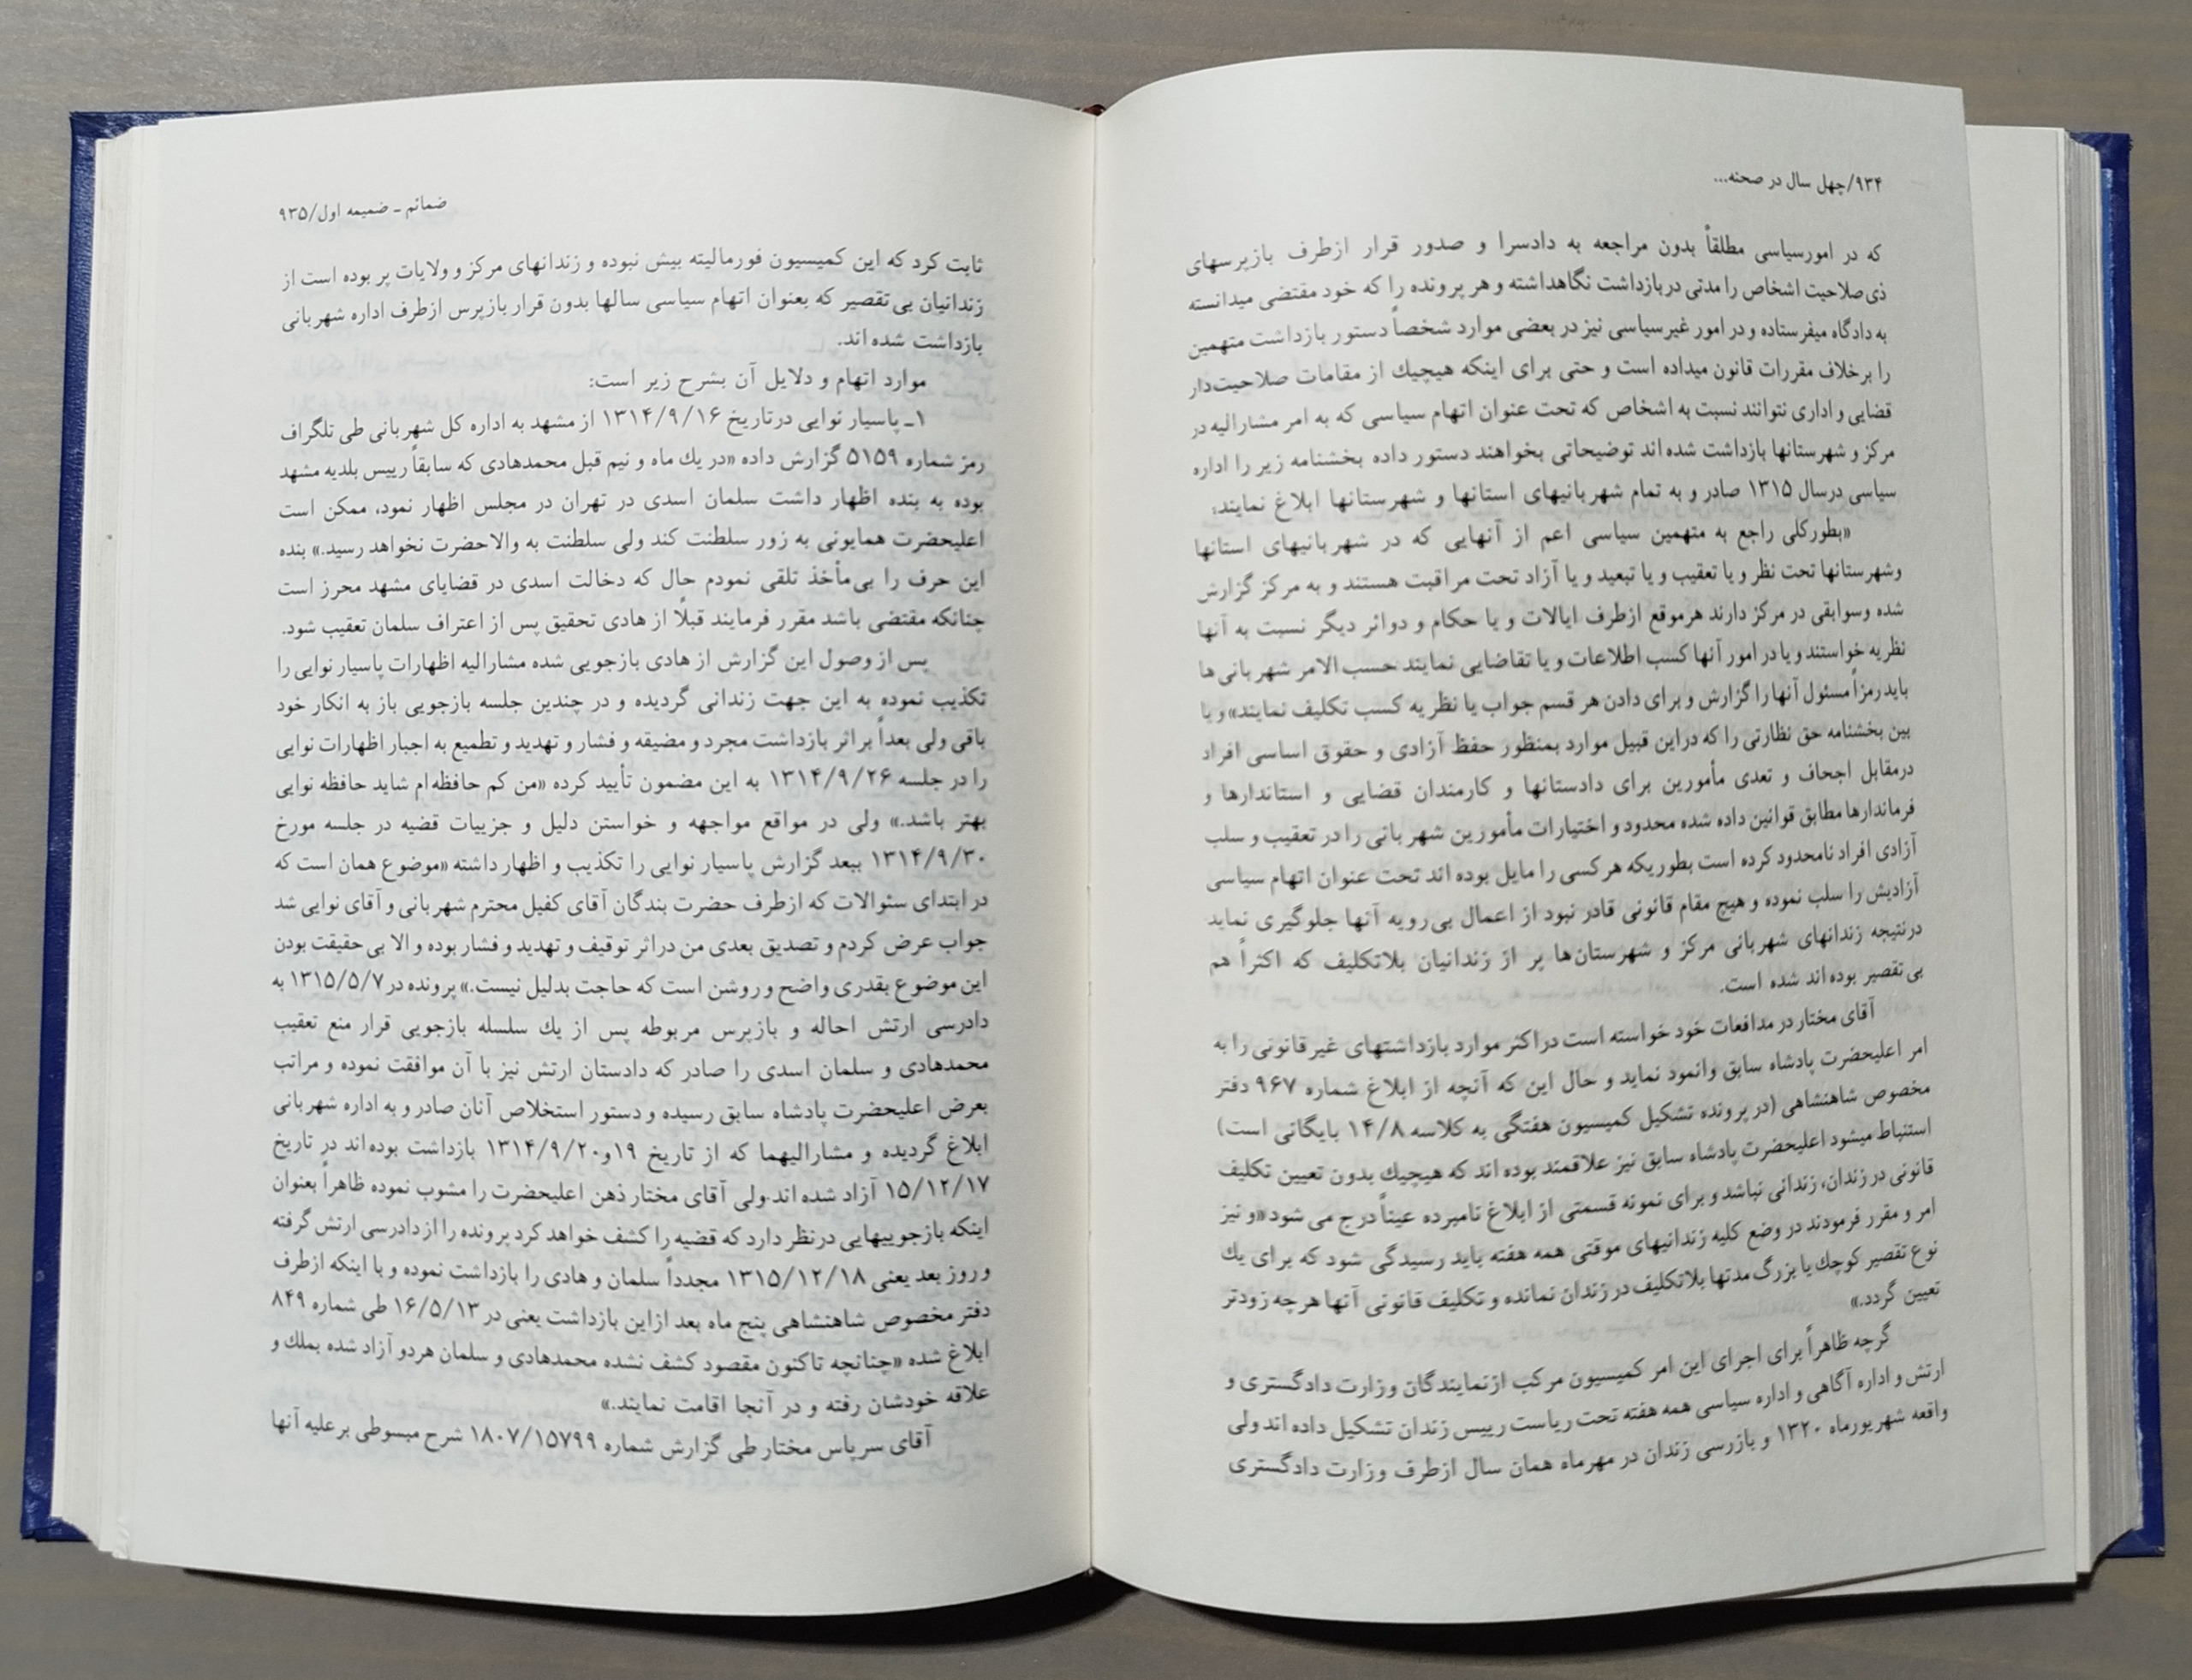 ۹۳۴/چهل سال در صحنه...
که در امورسیاسی مطلقاً بدون مراجعه به دادسرا و صدور قرار ازطرف بازپرسهای
ذی‌صلاحیت اشخاص را مدتی دربازداشت نگاهداشته و هر پرونده را که خود مقتضی میدانسته
به دادگاه میفرستاده و در امور غیرسیاسی نیز در بعضی موارد شخصاً دستور بازداشت متهمین
را برخلاف مقررات قانون میداده است و حتی برای اینکه هیچیك از مقامات صلاحیت‌دار
قضایی و اداری نتوانند نسبت به اشخاص که تحت عنوان اتهام سیاسی که به امر مشارالیه در
مرکز و شهرستانها بازداشت شده‌اند توضیحاتی بخواهند دستور داده بخشنامه زیر را اداره
سیاسی درسال ۱۳۱۵ صادر و به تمام شهربانیهای استانها و شهرستانها ابلاغ نمایند:
«بطورکلی راجع به متهمین سیاسی اعم از آنهایی که در شهربانیهای استانها
وشهرستانها تحت نظر و یا تعقیب و یا تبعید و یا آزاد تحت مراقبت هستند و به مرکز گزارش
شده وسوابقی در مرکز دارند هرموقع ازطرف ایالات و یا حکام و دوائر دیگر نسبت به آنها
نظریه خواستند و یا در امور آنها کسب اطلاعات و یا تقاضایی نمایند حسب‌الامر شهربانی‌ها
باید رمزاً مسئول آنها را گزارش و برای دادن هر قسم جواب یا نظریه کسب تکلیف نمایند» و با
بین بخشنامه حق نظارتی را که دراین قبیل موارد بمنظور حفظ آزادی و حقوق اساسی افراد
درمقابل اجحاف و تعدی مأمورین برای دادستانها و کارمندان قضایی و استاندارها و
فرماندارها مطابق قوانین داده شده محدود و اختیارات مأمورین شهربانی را در تعقیب و سلب
آزادی افراد نامحدود کرده است بطوریکه هرکسی را مایل بوده‌اند تحت عنوان اتهام سیاسی
آزادیش را سلب نموده و هیچ مقام قانونی قادر نبود از اعمال بی‌رویه آنها جلوگیری نماید
درنتیجه زندانهای شهربانی مرکز و شهرستان‌ها پر از زندانیان بلاتکلیف که اکثراً هم
بی‌تقصیر بوده‌اند شده است.
آقای مختار در مدافعات خود خواسته است دراکثر موارد بازداشتهای غیرقانونی را به
امر اعلیحضرت پادشاه سابق وانمود نماید و حال این که آنچه از ابلاغ شماره ۹۶۷ دفتر
مخصوص شاهنشاهی (در پرونده تشکیل کمیسیون هفتگی به کلاسه ۱۴/۸ بایگانی است)
استنباط میشود اعلیحضرت پادشاه سابق نیز علاقمند بوده‌اند که هیچیك بدون تعیین تکلیف
قانونی در زندان، زندانی نباشد و برای نمونه قسمتی از ابلاغ نامبرده عیناً درج می‌شود «و نیز
امر و مقرر فرمودند در وضع کلیه زندانیهای موقتی همه هفته باید رسیدگی شود که برای یك
نوع تقصیر کوچك یا بزرگ مدتها بلاتکلیف در زندان نمانده و تکلیف قانونی آنها هرچه زودتر
تعیین گردد.»
گرچه ظاهراً برای اجرای این امر کمیسیون مرکب ازنمایندگان وزارت دادگستری و
ارتش و اداره آگاهی و اداره سیاسی همه هفته تحت ریاست رییس زندان تشکیل داده‌اند ولی
واقعه شهریورماه ۱۳۲۰ و بازرسی زندان در مهرماه همان سال ازطرف وزارت دادگستری
ضمائم ـ ضمیمه اول/۹۳۵
ثابت کرد که این کمیسیون فورمالیته بیش نبوده و زندانهای مرکز و ولایات پر بوده است از
زندانیان بی‌تقصیر که بعنوان اتهام سیاسی سالها بدون قرار بازپرس ازطرف اداره شهربانی
بازداشت شده‌اند.
موارد اتهام و دلایل آن بشرح زیر است:
۱ـ پاسیار نوایی درتاریخ ۱۳۱۴/۹/۱۶ از مشهد به اداره کل شهربانی طی تلگراف
رمز شماره ۵۱۵۹ گزارش داده «در یك ماه و نیم قبل محمدهادی که سابقاً رییس بلدیه مشهد
بوده به بنده اظهار داشت سلمان اسدی در تهران در مجلس اظهار نمود، ممکن است
اعلیحضرت همایونی به زور سلطنت کند ولی سلطنت به والاحضرت نخواهد رسید.» بنده
این حرف را بی‌مأخذ تلقی نمودم حال که دخالت اسدی در قضایای مشهد محرز است
چنانکه مقتضی باشد مقرر فرمایند قبلاً از هادی تحقیق پس از اعتراف سلمان تعقیب شود.
پس از وصول این گزارش از هادی بازجویی شده مشارالیه اظهارات پاسیار نوایی را
تکذیب نموده به این جهت زندانی گردیده و در چندین جلسه بازجویی باز به انکار خود
باقی ولی بعداً براثر بازداشت مجرد و مضیقه و فشار و تهدید و تطمیع به اجبار اظهارات نوایی
را در جلسه ۱۳۱۴/۹/۲۶ به این مضمون تأیید کرده «من کم حافظه‌ام شاید حافظه نوایی
بهتر باشد.» ولی در مواقع مواجهه و خواستن دلیل و جزییات قضیه در جلسه مورخ
۱۳۱۴/۹/۳۰ ببعد گزارش پاسیار نوایی را تکذیب و اظهار داشته «موضوع همان است که
در ابتدای سئوالات که ازطرف حضرت بندگان آقای کفیل محترم شهربانی و آقای نوایی شد
جواب عرض کردم و تصدیق بعدی من دراثر توقیف و تهدید و فشار بوده و الا بی‌حقیقت بودن
این موضوع بقدری واضح و روشن است که حاجت بدلیل نیست.» پرونده در ۱۳۱۵/۵/۷ به
دادرسی ارتش احاله و بازپرس مربوطه پس از یك سلسله بازجویی قرار منع تعقیب
محمدهادی و سلمان اسدی را صادر که دادستان ارتش نیز با آن موافقت نموده و مراتب
بعرض اعلیحضرت پادشاه سابق رسیده و دستور استخلاص آنان صادر و به اداره شهربانی
ابلاغ گردیده و مشارالیهما که از تاریخ ۱۹و۱۳۱۴/۹/۲۰ بازداشت بوده‌اند در تاریخ
۱۵/۱۲/۱۷ آزاد شده‌اند.ولی آقای مختار ذهن اعلیحضرت را مشوب نموده ظاهراً بعنوان
اینکه بازجوییهایی درنظر دارد که قضیه را کشف خواهد کرد پرونده را از دادرسی ارتش گرفته
و روز بعد یعنی ۱۳۱۵/۱۲/۱۸ مجدداً سلمان و هادی را بازداشت نموده و با اینکه ازطرف
دفتر مخصوص شاهنشاهی پنج ماه بعد ازاین بازداشت یعنی در ۱۶/۵/۱۳ طی شماره ۸۴۹
ابلاغ شده «چنانچه تاکنون مقصود کشف نشده محمدهادی و سلمان هردو آزاد شده بملك و
علاقه خودشان رفته و در آنجا اقامت نمایند.»
آقای سرپاس مختار طی گزارش شماره ۱۸۰۷/۱۵۷۹۹ شرح مبسوطی برعلیه آنها